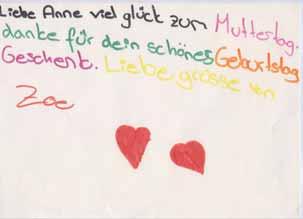 Liebe Anne viel glück zum Muttertag.
danke für dein schönes Geburtstag
Geschenk. Liebe grösse von
Zoe